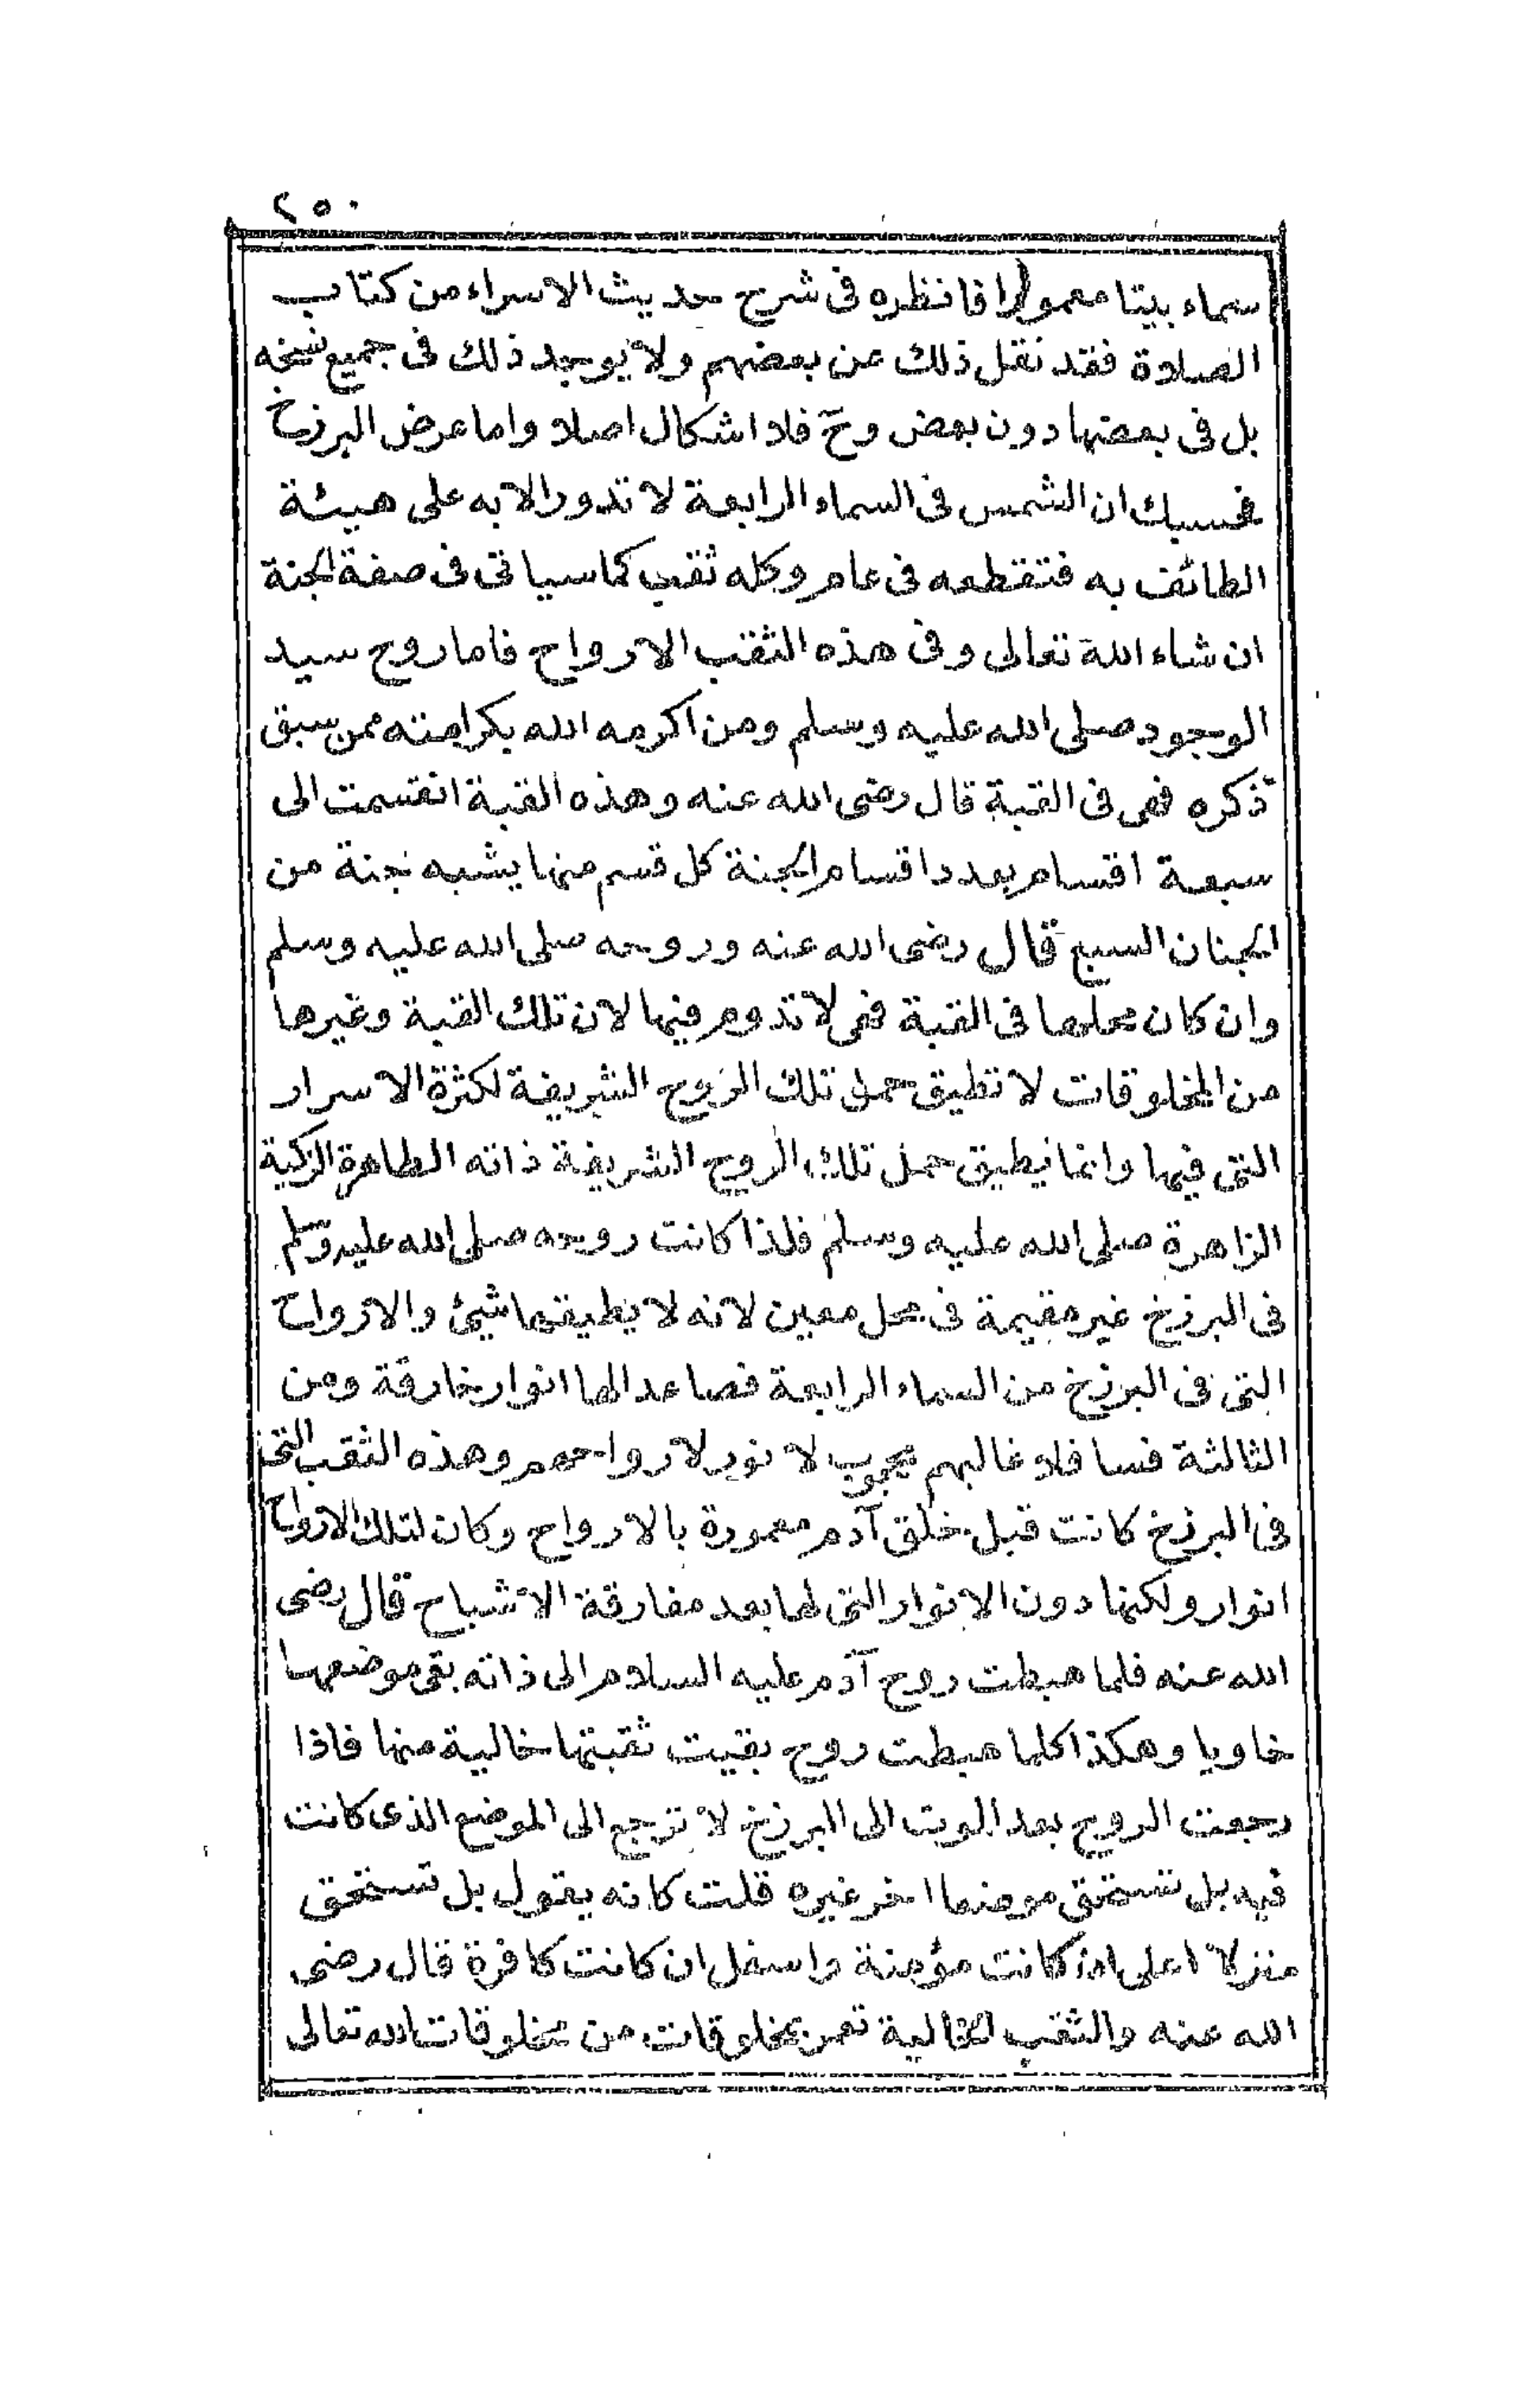 ٢٥٠
سماء بيتا معمورا فانظره فى شرح حديث الاسراء من كتاب
الصلاة فقد نقل ذلك عن بعضهم ولا يوجد ذلك فى جميع نسخه
بل فى بعضها دون بعض وحٓ فلا اشكال اصلا واما عرض البرزخ
فحسبك ان الشمس فى السماء الرابعة لا تدور الا به على هيئة
الطائف به فتقطعه فى عام وكله ثقب كما سياتى فى صفة الجنة
ان شاء الله تعالى وفى هذه الثقب الارواح فاما روح سيد
الوجود صلى الله عليه وسلم ومن اكرمه الله بكرامته ممن سبق
ذكره فهى فى القبة قال رضى الله عنه وهذه القبة انقسمت الى
سبعة اقسام بعدد اقسام الجنة كل قسم منها يشبه جنة من
الجنان السبع قال رضى الله عنه وروحه صلى الله عليه وسلم
وان كان محلها فى القبة فهى لا تدوم فيها لان تلك القبة وغيرها
من المخلوقات لا تطيق حمل تلك الروح الشريفة لكثرة الاسرار
التى فيها وانما يطيق حمل تلك الروح الشريفة ذاته الطاهرة الزكية
الزاهرة صلى الله عليه وسلم فلذا كانت روحه صلى الله عليه وسلم
فى البرزخ غير مقيمة فى محل معين لانه لا يطيقها شيئ والارواح
التى فى البرزخ من السماء الرابعة فصاعدا لها انوار خارقة ومن
الثالثة فسافلا غالبهم محجوب لا نور لارواحهم وهذه الثقب التى
فى البرزخ كانت قبل خلق آدم معمورة بالارواح وكان لتلك الارواح
انوار ولكنها دون الانوار التى لها بعد مفارقة الاشباح قال رضى
الله عنه فلما هبطت روح آدم عليه السلام الى ذاته بقى موضعها
خاويا وهكذا كلما هبطت روح بقيت ثقبتها خالية منها فاذا
رجعت الروح بعد الموت الى البرزخ لا ترجع الى الموضع الذى كانت
فيه بل تستحق موضعا اخر غيره قلت كانه يقول بل تستحق
منزلا اعلى ان كانت مؤمنة واسفل ان كانت كافرة قال رضى
الله عنه والثقب الخالية تعمر بمخلوقات من مخلوقات الله تعالى